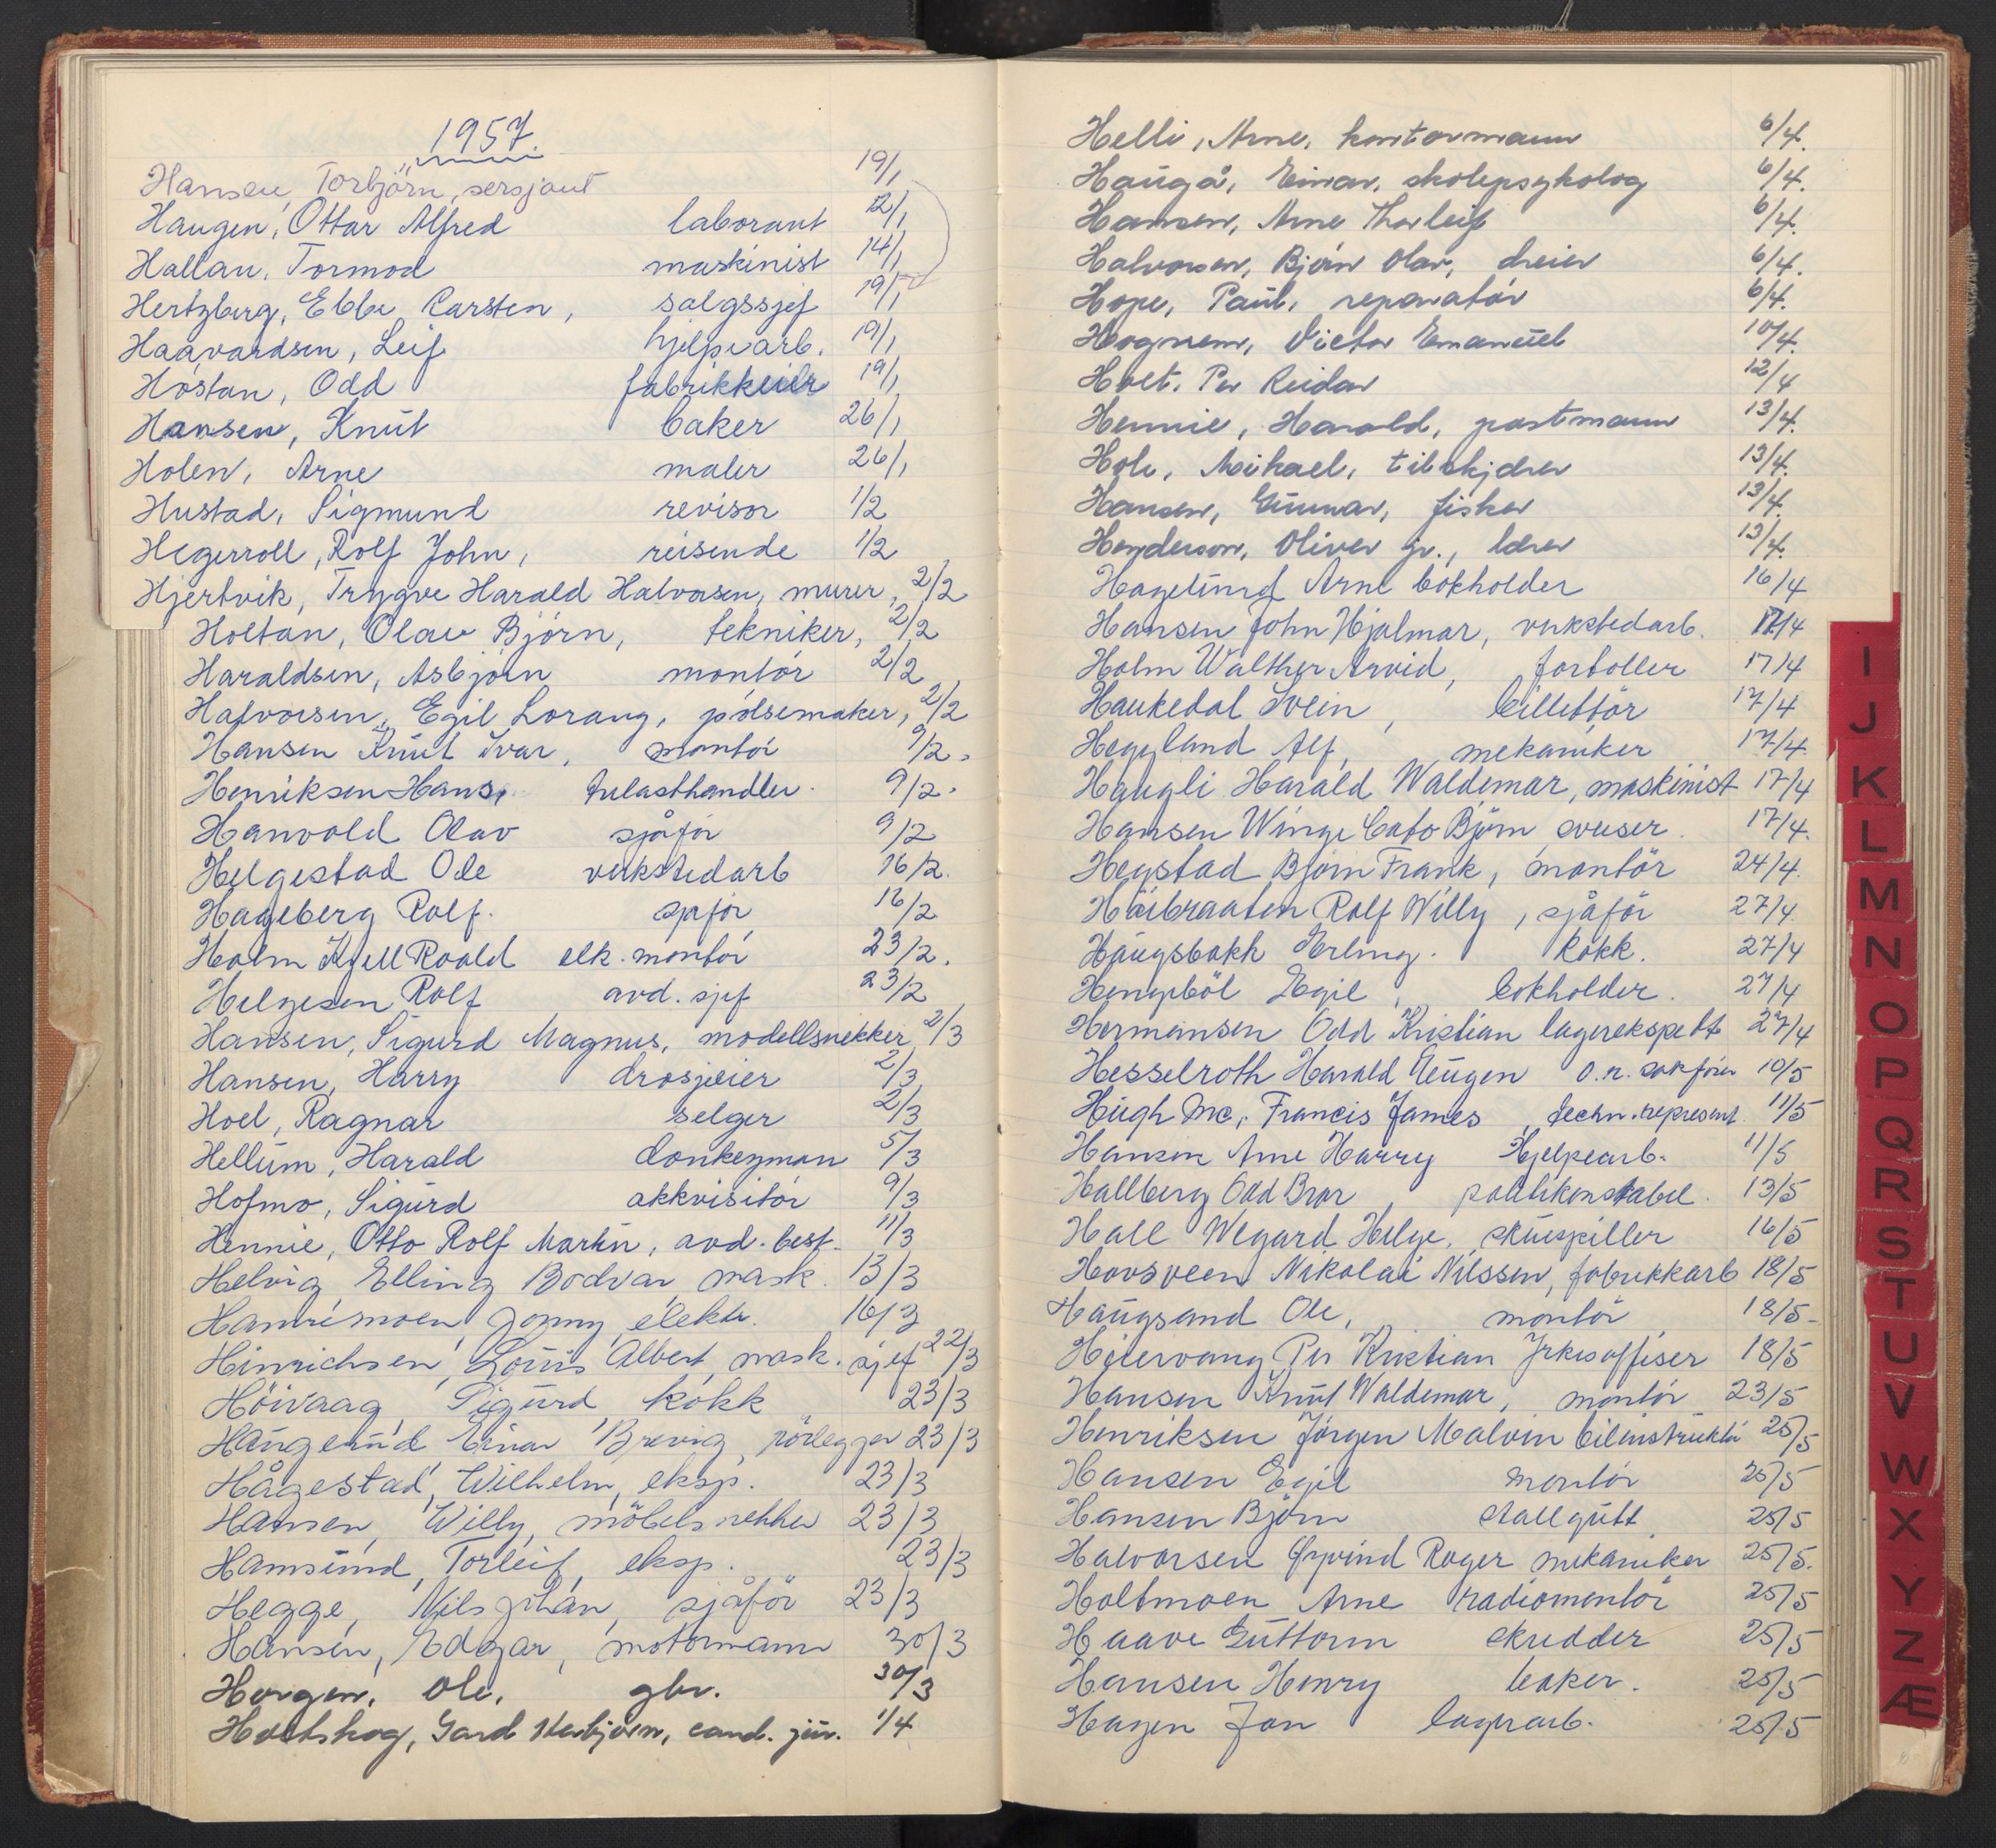 1957.
Hansen, Torbjörn, sersjant 19/1
Haugen, Ottar Alfred laborant 12/1
Hallan, Tormod maskinist 14/1
Hertzberg, Ebbe Karsten, salgssjef 19/1
Haavardsen, Leif hjelpearb. 19/1
Höstan, Odd fabrikkeier 19/1
Hansen, Knut baker 26/1
Holen, Arne maler 26/1
Hustad, Sigmund revisor 1/2
Hegerroll, Rolf John, reisende 1/2
Hjertvik, Trygve Harald Halvorsen, murer, 2/2
Holtan, Olav Björn, tekniker, 2/2
Haraldsen, Asbjörn montör 2/2
Halvorsen, Egil Lorang, pölsemaker, 2/2
Hansen Knut Ivar, montör 9/2.
Henriksen Hans, trelasthandler. 9/2.
Hanvold Olav sjåför 9/2
Helgestad Ole verkstedarb 16/2.
Hageberg Rolf. sjåför 16/2
Holm Kjell Roald elk. montör 23/2.
Helgesen Rolf avd. sjef 23/2
Hansen, Sigurd Magnus, modellsnekker 2/3
Hansen, Harry drosjeeier 2/3
Hoel, Ragnar selger 2/3
Hellum, Harald donkeyman 5/3
Hofmo, Sigurd akkvisitör 9/3
Hennie, Otto Rolf Martin, avd. best. 11/3
Helvig, Elling Bodvar, mask. 13/3
Hamrismoen, Jonny, elektr. 16/3
Hinrichsen, Louis Albert, mask. sjef 22/3
Höivaag, Sigurd, kokk 23/3
Haugerud Einar Brevig, rörlegger 23/3
Hågestad, Wilhelm, eksp. 23/3
Hansen, Willy, möbelsnekker 23/3
Hamsund, Torleif, eksp. 23/3
Hegge, Nils Johan, sjåför 23/3
Hansen, Edgar, motormann 30/3
Horgen, Ole, gbr. 30/3
Holtskog, Gard Herbjörn, cand. jur. 1/4
Helli, Arne, kontormann 6/4.
Haugå, Einar, skolepsykolog 6/4.
Hansen, Arne Thorleif 6/4.
Halvorsen, Björn Olav, dreier 6/4.
Hope, Paul, reparatör 6/4.
Hognem, Victor Emanuel 10/4.
Holt, Per Reidar 12/4
Hennie, Harald, postmann 13/4.
Hole, Mikael, tilskjærer 13/4.
Hansen, Gunnar, fisker 13/4.
Henderson, Oliver jr., lærer 13/4.
Hagelund Arne bokholder 16/4
Hansen John Hjalmar, verkstedarb. 17/4
Holm Walther Arvid, fortoller 17/4
Haukedal Svein, billettör 17/4
Heggland Alf, mekaniker 17/4
Haugli Harald Waldemar, maskinist 17/4
Hansen Winge Cato Björn sveiser. 17/4.
Hegstad Björn Frank, montör 24/4.
Höibraaten Rolf Willy, sjåför 27/4
Haugsbakk Erling. kokk. 27/4
Hengeböl Egil, bokholder. 27/4
Hermansen Odd Kristian lagerekspedt 27/4
Hesselroth Harald Eugen o.r. sakförer 10/5
Hugh Mc, Francis James, techn. represent. 11/5
Hansen Arne Harry Hjelpearb. 11/5
Hallberg Odd Bror politikonstabel. 13/5
Hall Wegard Helge, skuespiller 16/5
Hovsveen Nikolai Nilssen, fabrikkarb 18/5
Haugsand Ole, montör 18/5-
Hetervang Per Kristian Yrkesoffiser 18/5
Hansen Knut Waldemar, montör 23/5
Henriksen Jörgen Malvin bilinstruktör 25/5
Hansen Egil montör 25/5
Hansen Björn stallgutt 25/5
Halvorsen Øyvind Roger mekaniker 25/5.
Holtmoen Arne radiomontör 25/5
Haave Guttorm skredder 25/5
Hansen Henry baker. 25/5
Hagen Jan lagerarb. 25/5
I
J
K
L
M
N
O
P
Q
R
S
T
U
V
W
X
Y
Z
Æ